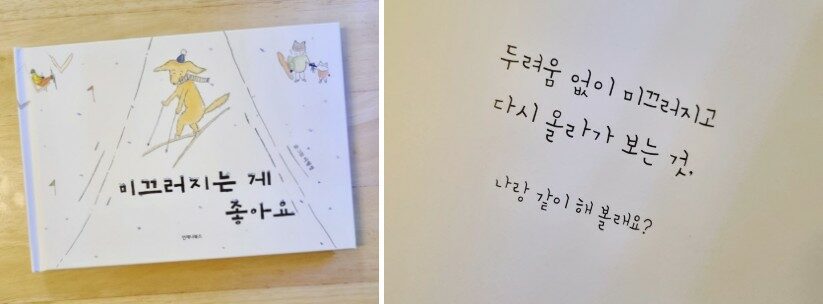 미끄러지는 게
좋아요
두려움 없이 미끄러지고
다시 올라가 보는 것.
나랑 같이 해 볼래요?